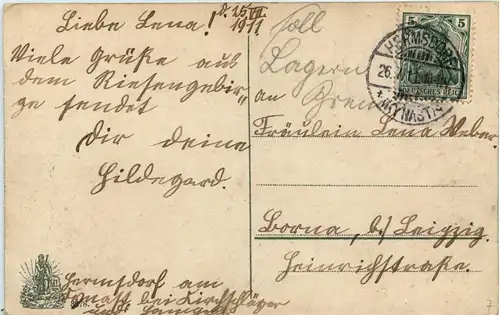 Liebe Lena!
d. 25. VII. 1911
Viele Grüße aus
dem Riesengebir-
ge sendet
Dir deine
Hildegard.
Hermsdorf am
Kynast bei Kirschläger
soll
Lagern
an
Fräulein Lena Weber.
Borna, b./ Leipzig.
Heinrichstraße.
5 5
DEUTSCHES REICH
HERMSDORF
26.
(KYNAST)
7